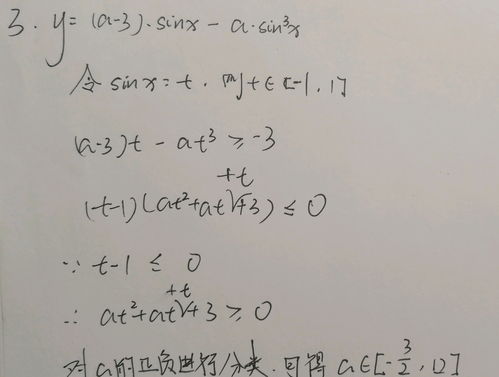 3. y=(a-3)·sinx - a·sin³x
令sinx=t. 则t∈[-1,1]
(a-3)t - at³ ≥ -3
+t
(t-1)(at²+at+3) ≤ 0
∵ t-1 ≤ 0
+t
∴ at²+at+3 ≥ 0
对a的正负进行分类.可得 a∈[-3/2,12]